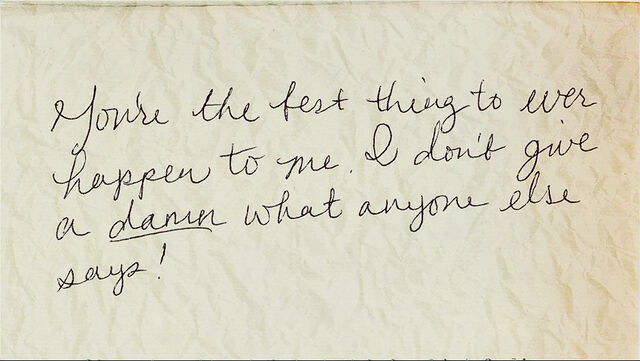 You're the best thing to ever
happen to me. I don't give
a damn what anyone else
says!